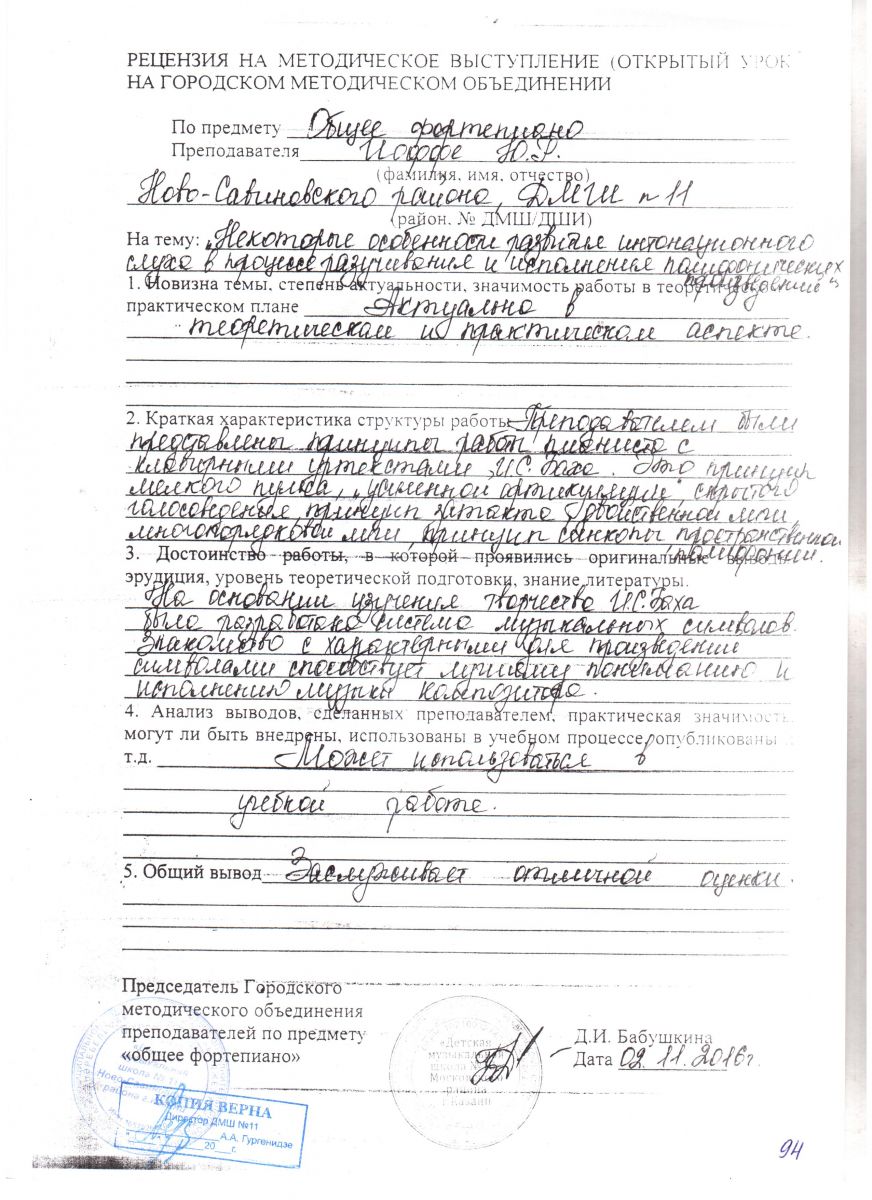 РЕЦЕНЗИЯ НА МЕТОДИЧЕСКОЕ ВЫСТУПЛЕНИЕ (ОТКРЫТЫЙ УРОК
НА ГОРОДСКОМ МЕТОДИЧЕСКОМ ОБЪЕДИНЕНИИ
По предмету Общее фортепиано
Преподавателя Иоффе Ю.Р.
(фамилия, имя, отчество)
Ново-Савиновского района, ДМШ № 11
(район, № ДМШ/ДШИ)
На тему: „Некоторые особенности развития интонационного
слуха в процессе разучивания и исполнения полифонических
произведений"
1. Новизна темы, степень актуальности, значимость работы в теоретическом
практическом плане Актуально в
теоретическом и практическом аспекте.
2. Краткая характеристика структуры работы Преподавателем были
представлены принципы работы пианиста с
клавирными уртекстами И.С. Баха. Это принцип
мелкого пульса, „усиленной артикуляции", скрытого
голосоведения, принцип затакта, двойственной лиги,
многопорядковой лиги, принцип синкопы, пространственной
полифонии.
3. Достоинство работы, в которой проявились оригинальные выводы
эрудиция, уровень теоретической подготовки, знание литературы.
На основании изучения творчества И.С. Баха
была разработана система музыкальных символов.
Знакомство с характерными для произведений
символами способствует лучшему пониманию и
исполнению музыки композитора.
4. Анализ выводов, сделанных преподавателем, практическая значимость
могут ли быть внедрены, использованы в учебном процессе, опубликованы и
т.д. Может использоваться в
учебной работе.
5. Общий вывод Заслуживает отличной оценки.
Председатель Городского
методического объединения
преподавателей по предмету
«общее фортепиано»
Д.И. Бабушкина
Дата 02.11.2016г.
«Детская
музыкальная
школа
Московского
района
г.Казани
КОПИЯ ВЕРНА
Директор ДМШ №11
А.А. Гургенидзе
20 г.
94